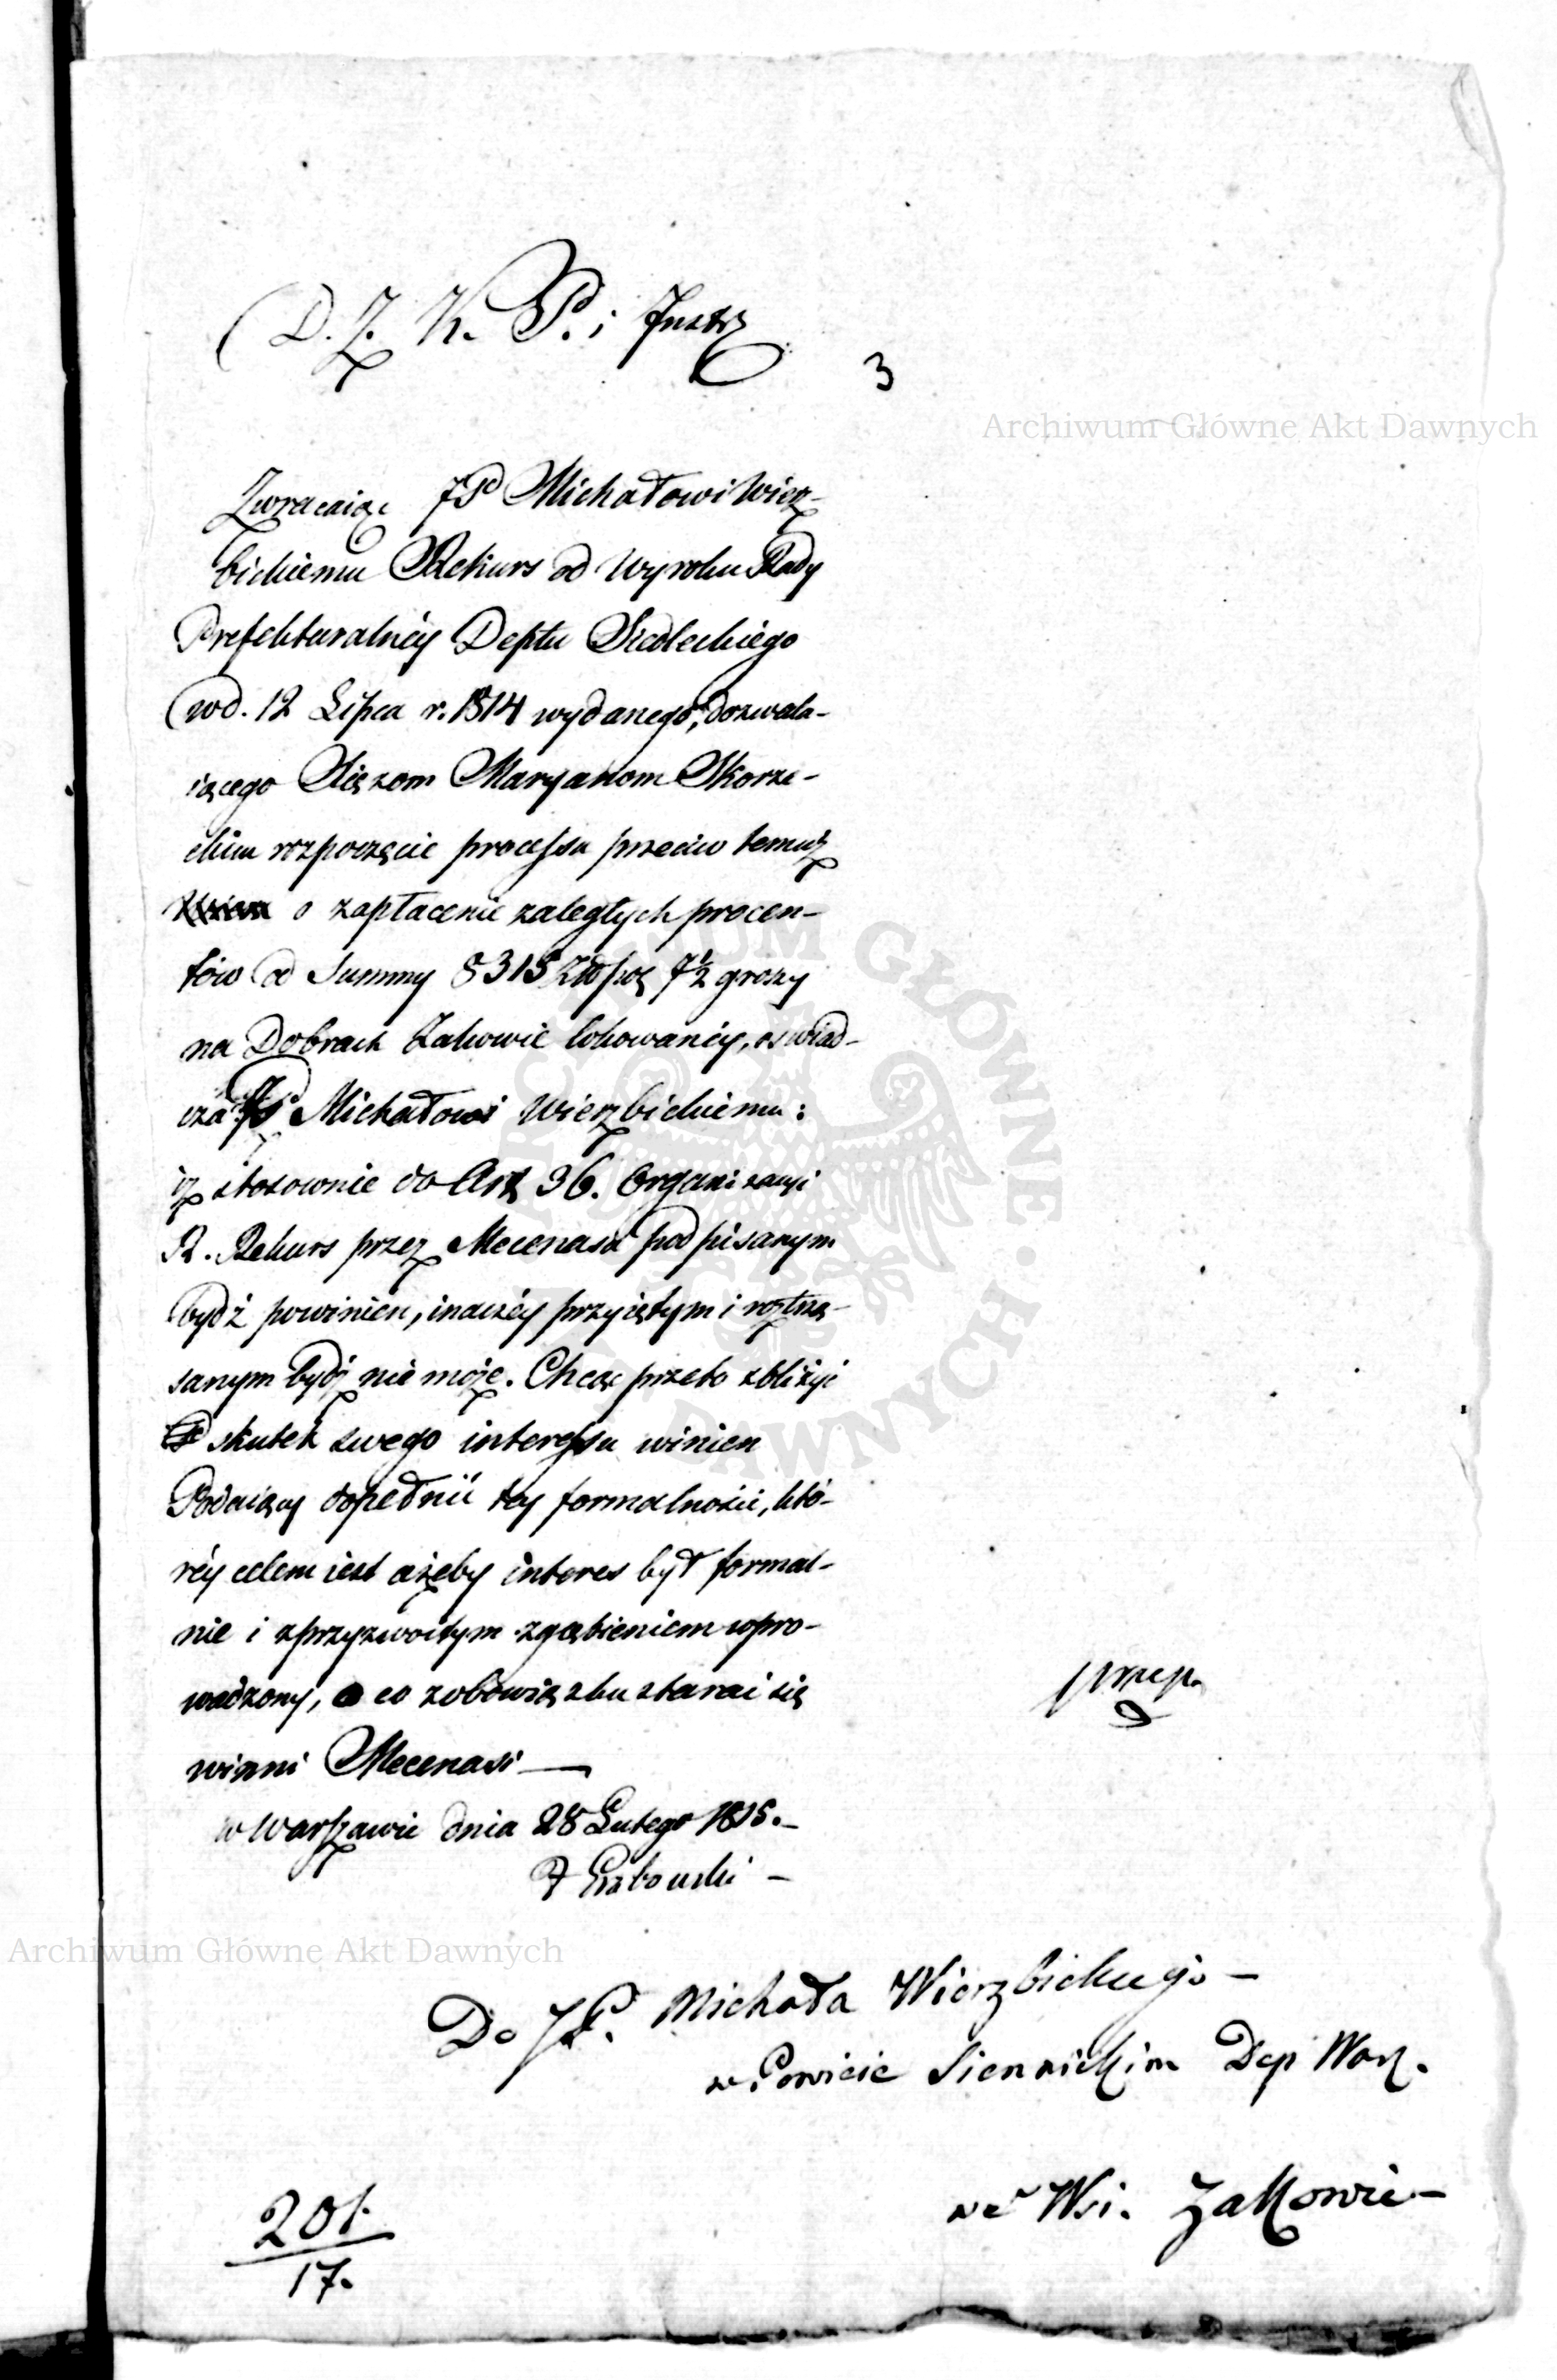 D. Z. K. P. i Instr
3
Archiwum Główne Akt Dawnych
Zwracaiąc JP Michałowi Wierz-
bickiemu Rekurs od Wyroku Rady
Prefekturalnéy Deptu Siedleckiego
wd. 12 Lipca r. 1814 wydanego, dozwala-
iącego Xiężom Maryanom Skorze-
ckim rozpoczęcie processu przeciw temuż
o zapłacenie zaległych procen-
tów od Summy 8315 Złpol 7½ groszy
na Dobrach Żakowie lokowanéy, oswiad-
cza JP Michałowi Wierzbickiemu:
iż stosownie do Art 36. Organizacyi
R. Rekurs przez Mecenasa podpisanym
bydź powinien, inaczéy przyiętym i roztrzą-
sanym bydź nie może. Chcąc przeto zbliżyć
skutek swego interessu winien
Podaiący dopełnić téy formalności, któ-
réy celem iest ażeby interes był formal-
nie i z przyzwoitym zgłębieniem wpro-
wadzony, o co z obowiązku starać się
winni Mecenasi —
w Warszawie dnia 28 Lutego 1815. —
Grabowski —
przep.
Archiwum Główne Akt Dawnych
Do JP. Michała Wierzbickiego —
w Powiecie Siennickim Dep Warsz.
we Wsi. Żakowie —
201.
17.
ARCHIWUM GŁÓWNE AKT DAWNYCH